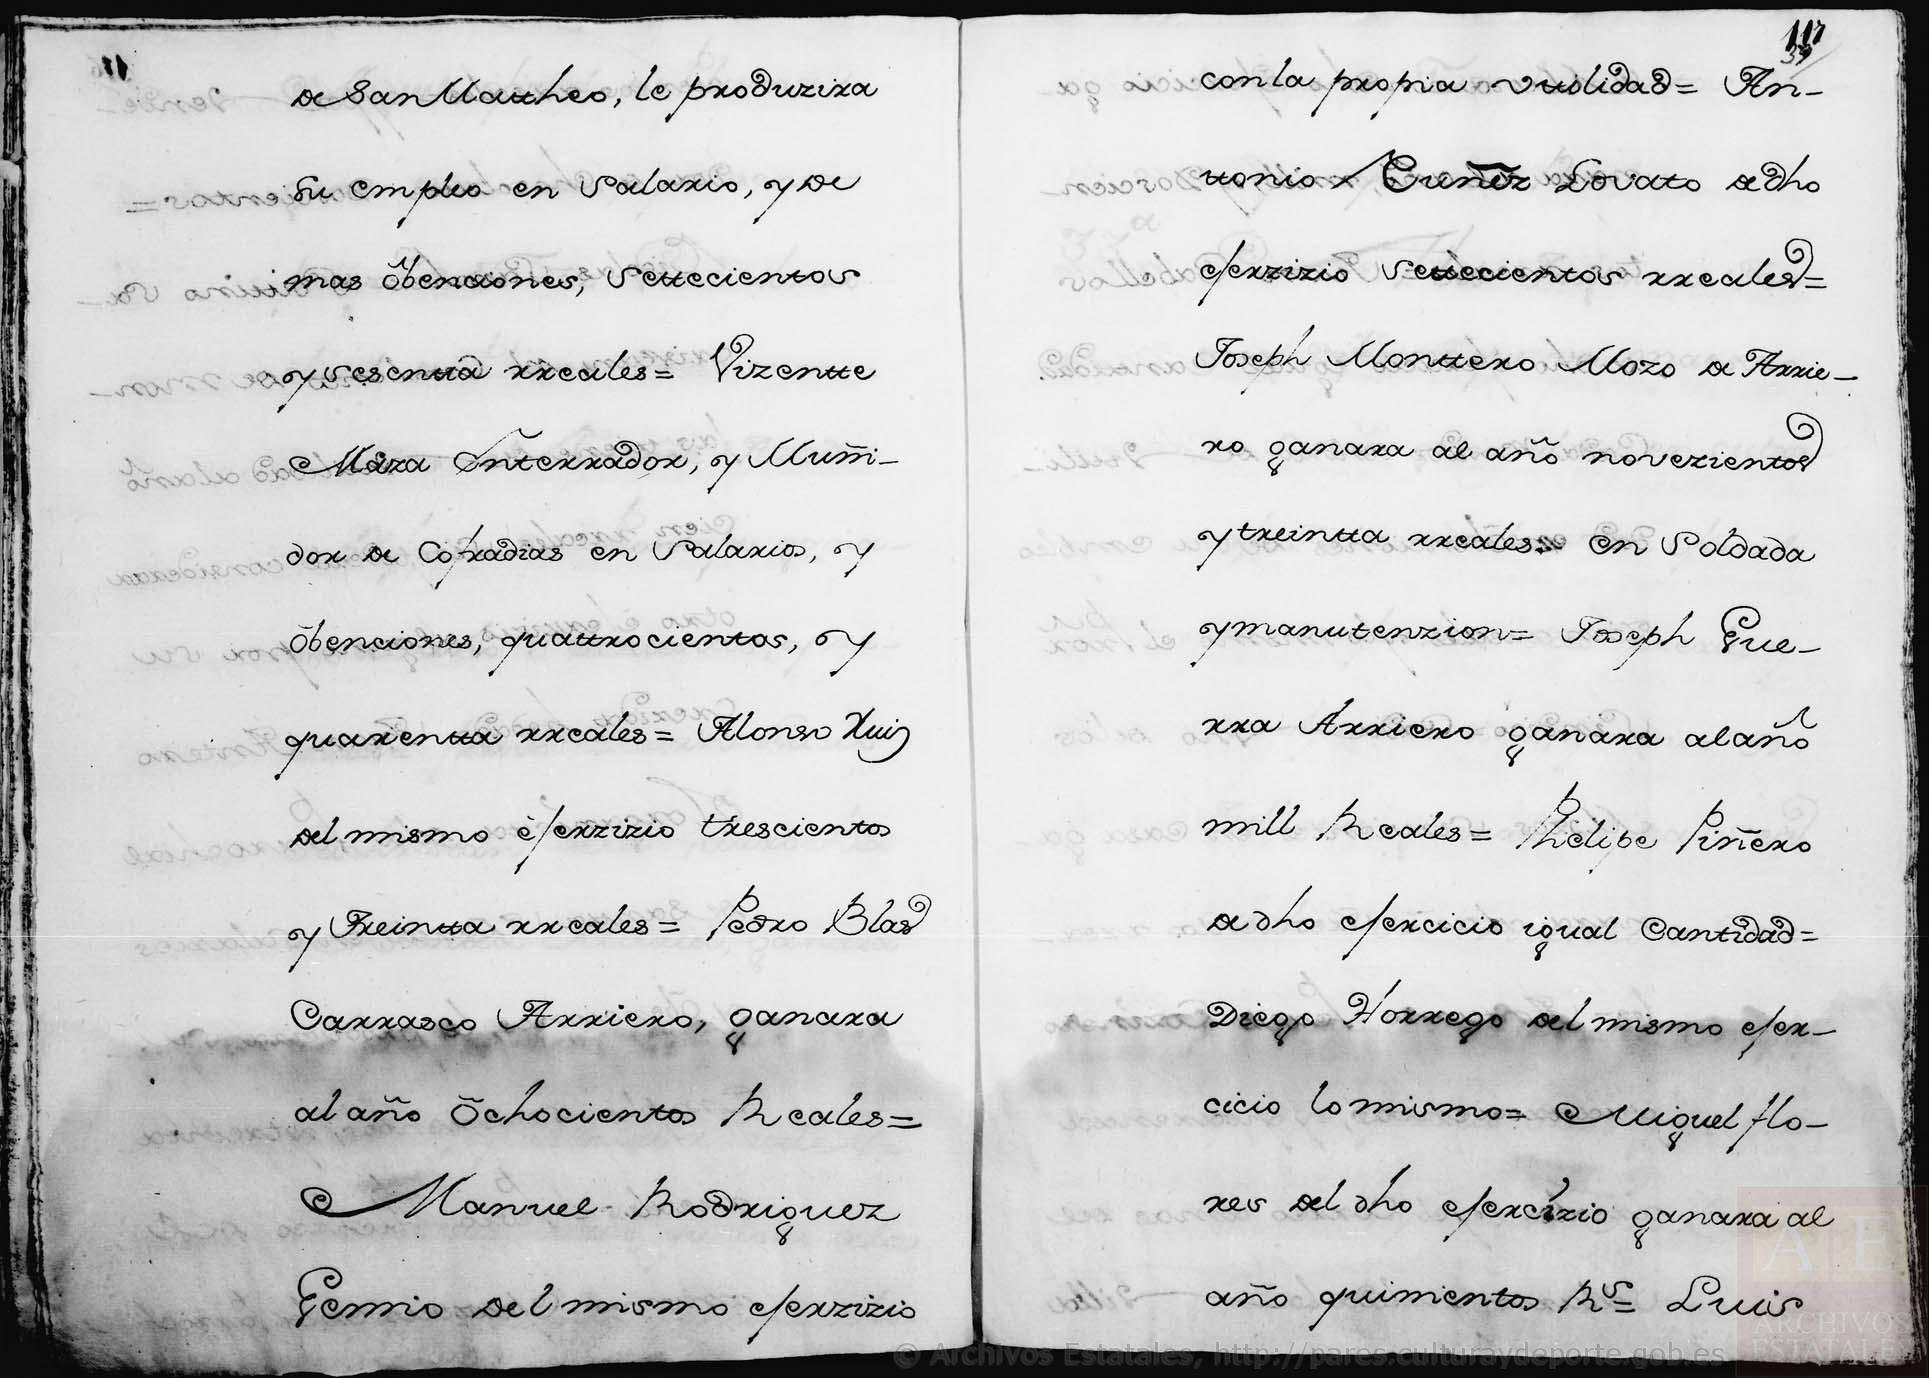 de San Mattheo, le produzira
su empleo en Salario, y de
mas obenciones, Settecientos
y Sesentta rreales= Vizentte
Maza Enterrador, y Muñi-
dor de Cofradias en Salario, y
obenciones, quattrocientos, y
quarentta rreales= Alonso Ruiz
del mismo èferzizio trescientos
y Treintta rreales= Pedro Blas
Carrasco Arriero, ganara
al año ochocientos Reales=
Manuel Rodriguez
Gennio del mismo eferzizio
117
39
con la propria Vttilidad= An-
ttonio Lovato de dho
eferzizio Settecientos rreales=
Joseph Monttero Mozo de Arrie-
ro ganara al año novezientos
y treintta rreales= en Soldada
y manutenzion= Joseph Gue-
rra Arriero ganàra al año
mill Reales= Phelipe Piñero
de dho efercicio igual Cantidad=
Diego Horrego del mismo efer-
cicio lo mismo= Miguel flo-
res del dho efercizio ganara al
año quinientos Rs= Luis
© Archivos Estatales, http://pares.culturaydeporte.gob.es
AE
ARCHIVOS
ESTATALES